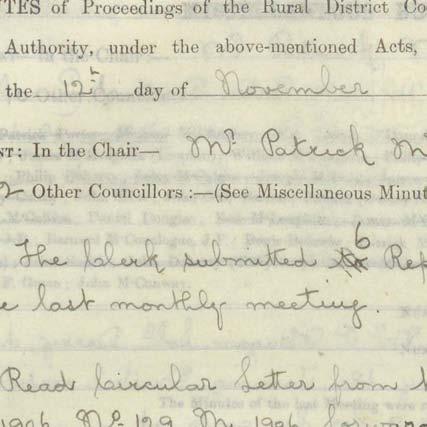 TES of Proceedings of the Rural District Co
Authority, under the above-mentioned Acts,
the 12th day of November
NT: In the Chair— Mr. Patrick
2 Other Councillors:—(See Miscellaneous Minut
The Clerk submitted 6 Rep
e last monthly meeting.
Read Circular Letter from
1906 No 129 1906